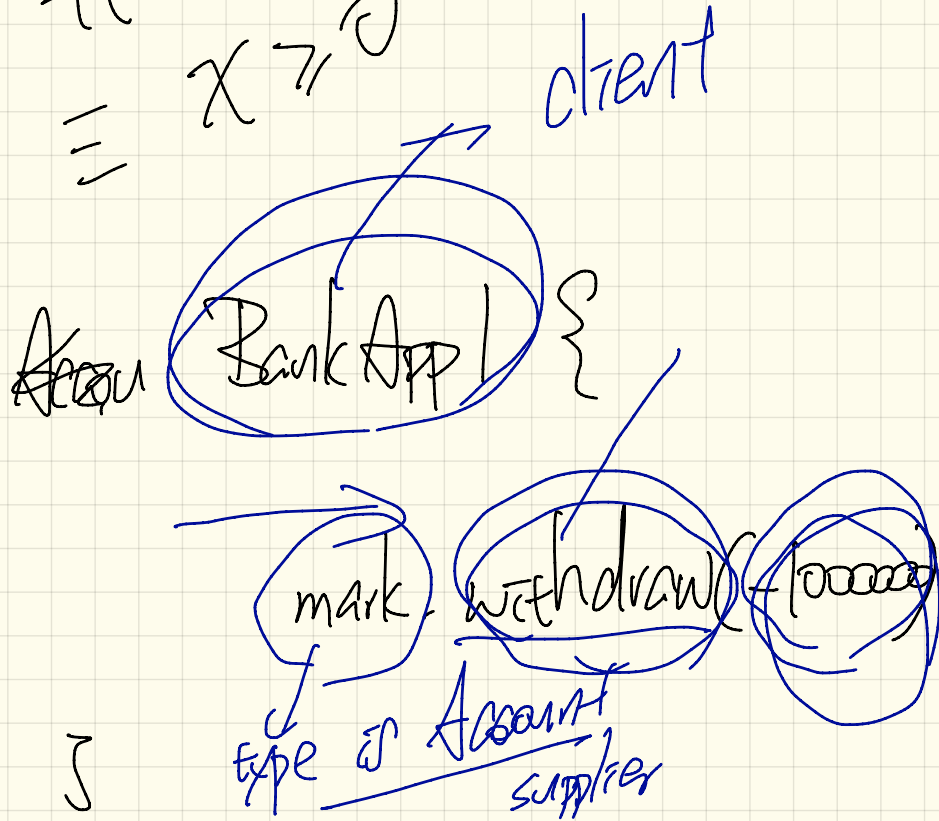 ≡ x ≥ 0
client
BankApp1 {
mark.withdraw(-1000000)
type is Account
supplier
}